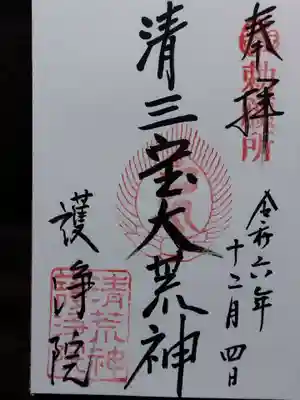 奉拝
勅願所
令和六年
十二月四日
清三宝大荒神
清荒神
護浄院
護浄院